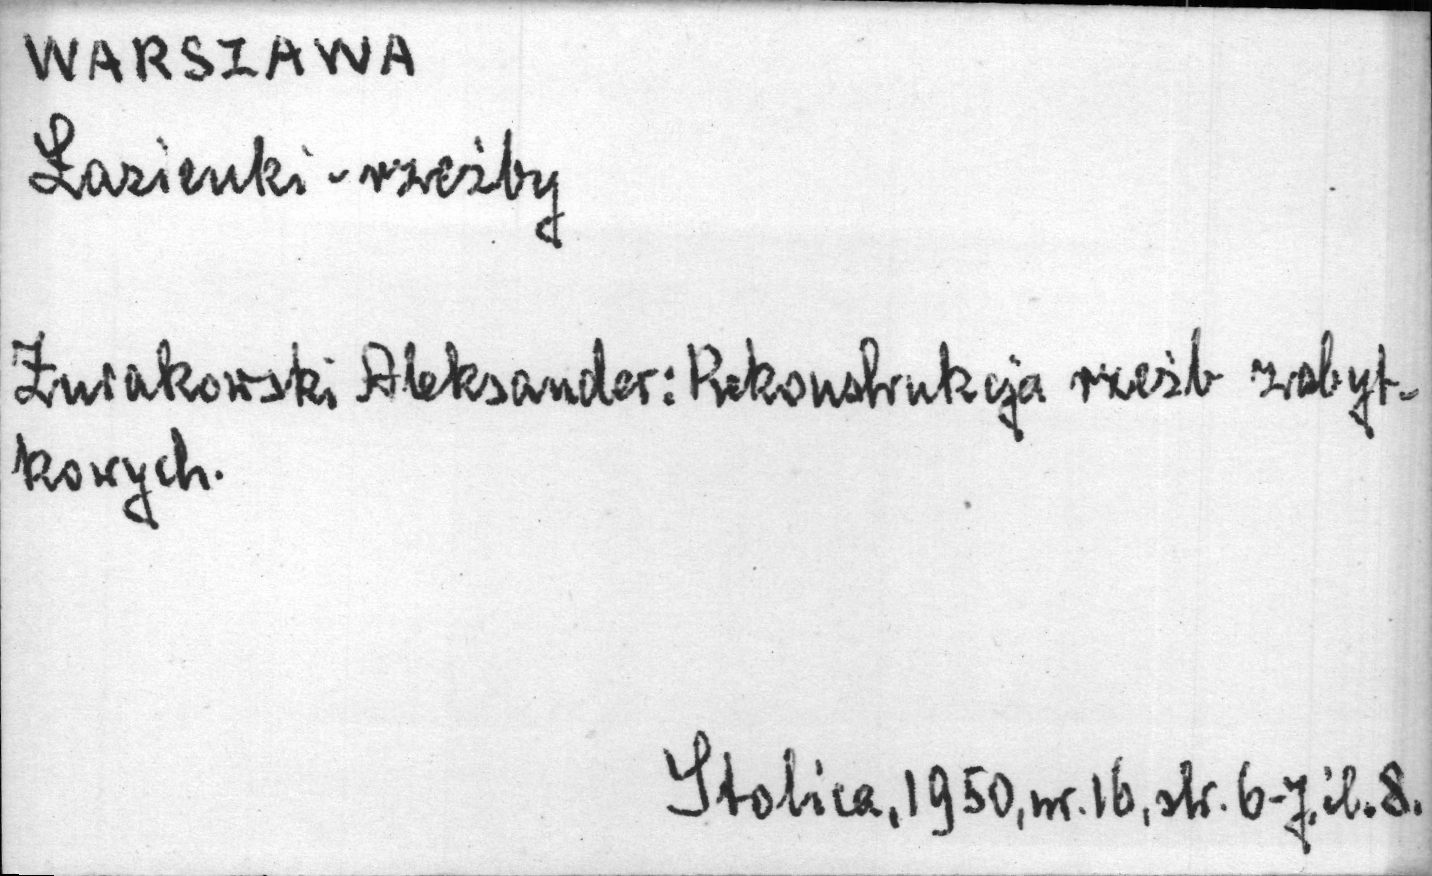 WARSZAWA
Łazienki - rzeźby
Żurakowski Aleksander: Rekonstrukcja rzeźb zabyt-
kowych.
Stolica, 1950, nr. 16, str. 6-7, il. 8.